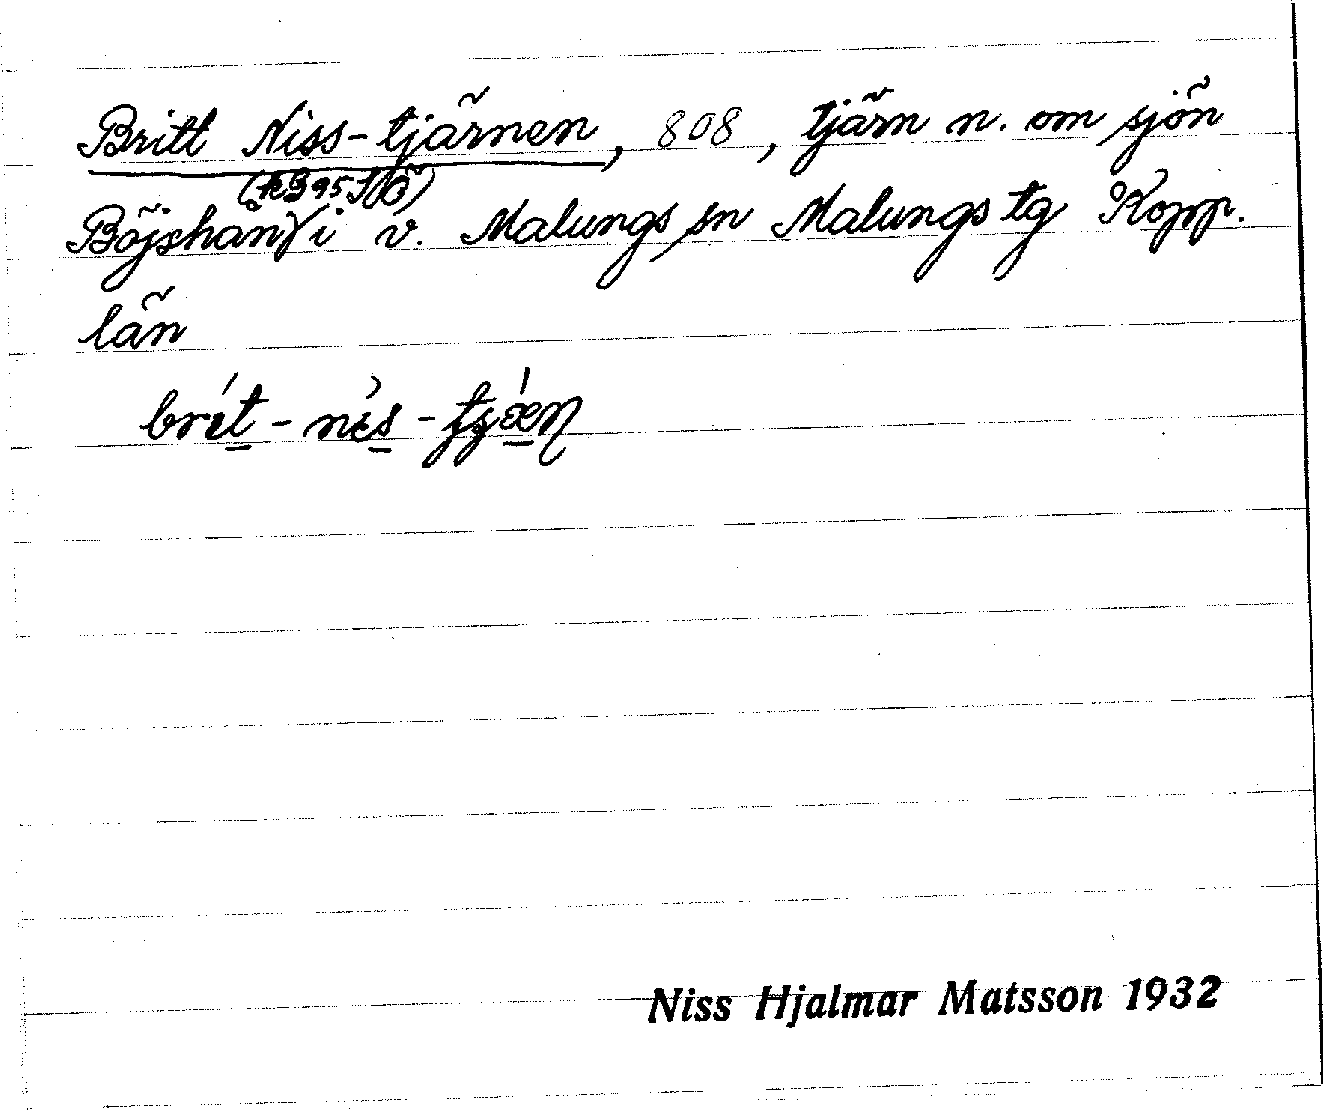 Britt Niss-tjärnen, 808, tjärn n. om sjön
Böjshån i v. Malungs sn Malungs tg Kopp.
län
brit - nis -
Niss Hjalmar Matsson 1932